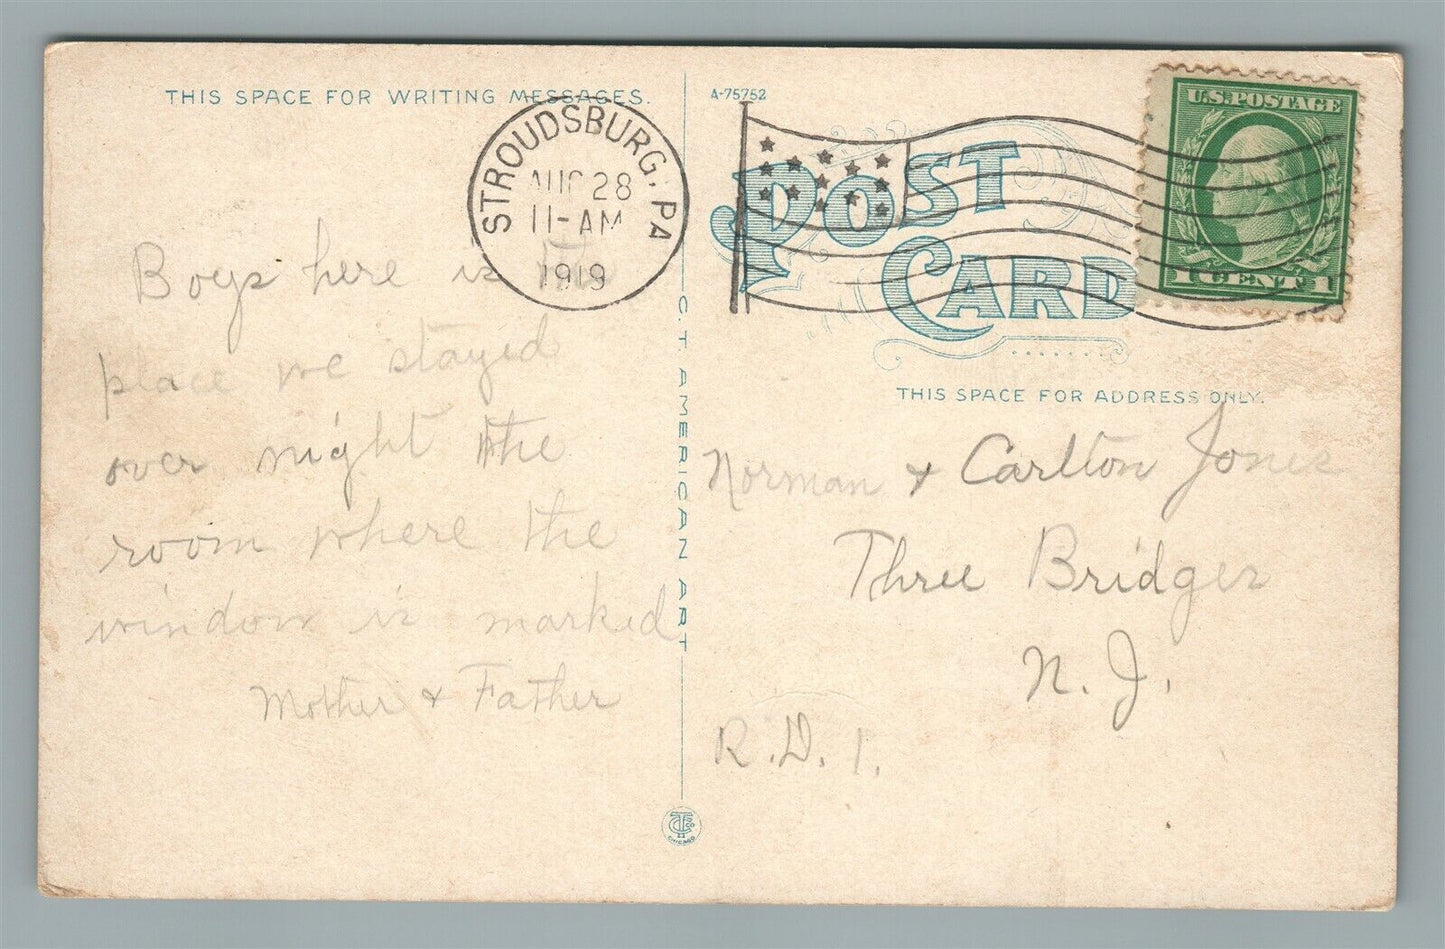 THIS SPACE FOR WRITING MESSAGES.
A-75752
STROUDSBURG, PA
AUG 28
11-AM
1919
POST
CARD
U.S. POSTAGE
1 CENT 1
THIS SPACE FOR ADDRESS ONLY.
Boys here is the
place we stayed
over night the
room where the
window is marked
Mother & Father
C.T. AMERICAN ART
Norman & Carlton Jones
Three Bridges
N. J.
R.D. 1.
CHICAGO